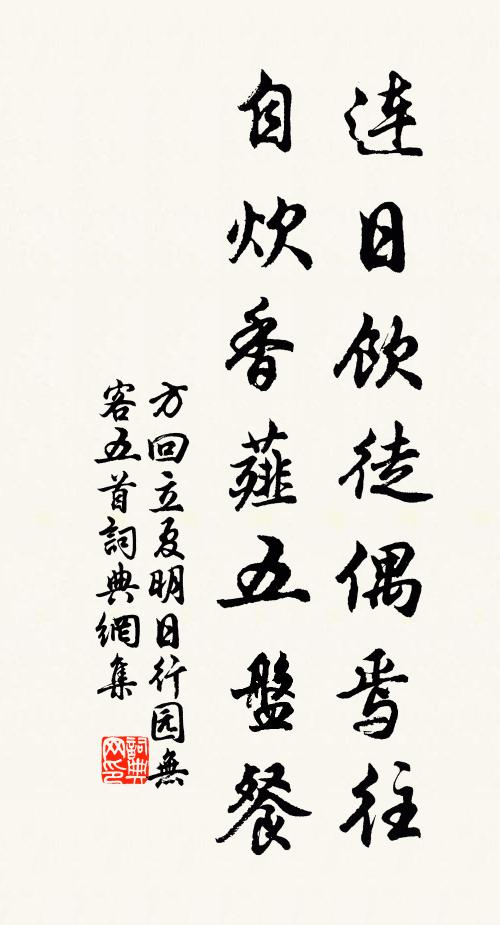 連日飲徒偶焉往
自炊香薤五盤餐
方回立夏明日行园無
客五首詞典網集
詞典
网印